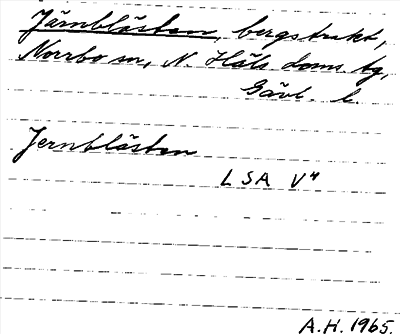 Järnblästen, bergstrakt,
Norrbo sn, N. Häls. doms. tg,
Gävl. l.
Jernblästen
LSA V"
A.H. 1965.